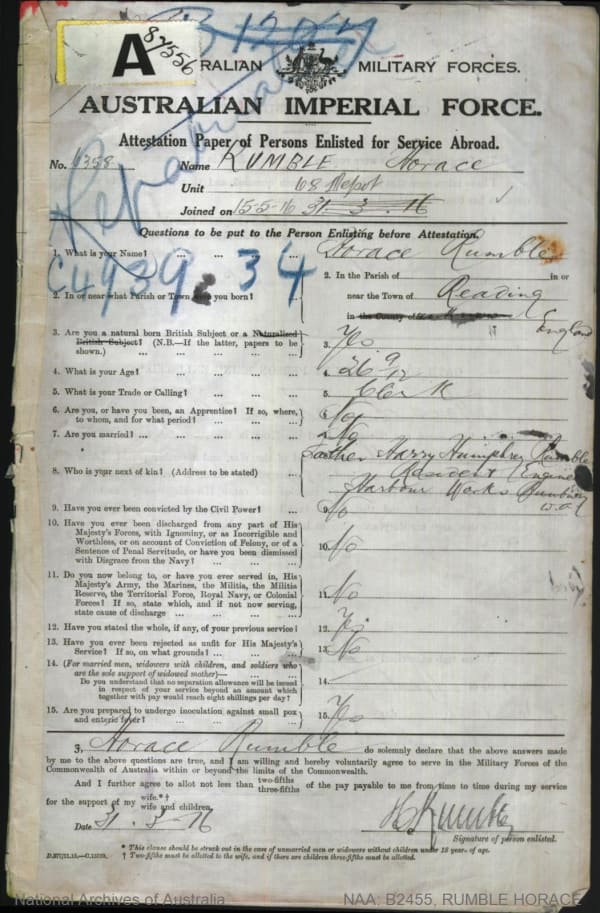 B 1204
A 84556
AUSTRALIAN MILITARY FORCES.
AUSTRALIAN IMPERIAL FORCE.
Attestation Paper of Persons Enlisted for Service Abroad.
No. 6358 Name RUMBLE Horace
Unit 68 Depot
Joined on 15-5-16 31 . 3 . 16
Questions to be put to the Person Enlisting before Attestation.
C4939 34
1. What is your Name? ... ... ... ... Horace Rumble
2. In or near what Parish or Town were you born? 2. In the Parish of in or
near the Town of Reading
in the County of England
3. Are you a natural born British Subject or a Naturalised
British Subject? (N.B.—If the latter, papers to be
shown.) ... ... ... 3. Yes
4. What is your Age? ... ... ... ... 4. 26 9/12
5. What is your Trade or Calling? ... ... ... 5. Clerk
6. Are you, or have you been, an Apprentice? If so, where,
to whom, and for what period? ... ... ... 6. No
7. Are you married? ... ... ... ... ... No
8. Who is your next of kin? (Address to be stated) ... Father Harry Humphrey Rumble
Resident Engineer
Harbour Works Bunbury
W.A.
9. Have you ever been convicted by the Civil Power? ... 9. No
10. Have you ever been discharged from any part of His
Majesty's Forces, with Ignominy, or as Incorrigible and
Worthless, or on account of Conviction of Felony, or of a
Sentence of Penal Servitude, or have you been dismissed
with Disgrace from the Navy? ... ... ... 10. No
11. Do you now belong to, or have you ever served in, His
Majesty's Army, the Marines, the Militia, the Militia
Reserve, the Territorial Force, Royal Navy, or Colonial
Forces? If so, state which, and if not now serving,
state cause of discharge ... ... ... 11. No
12. Have you stated the whole, if any, of your previous service? 12. Yes
13. Have you ever been rejected as unfit for His Majesty's
Service? If so, on what grounds? ... ... 13. No
14. (For married men, widowers with children, and soldiers who
are the sole support of widowed mother)—
Do you understand that no separation allowance will be issued
in respect of your service beyond an amount which
together with pay would reach eight shillings per day? 14.
15. Are you prepared to undergo inoculation against small pox
and enteric fever? ... ... ... ... 15. Yes
I, Horace Rumble do solemnly declare that the above answers made
by me to the above questions are true, and I am willing and hereby voluntarily agree to serve in the Military Forces of the
Commonwealth of Australia within or beyond the limits of the Commonwealth.
And I further agree to allot not less than two-fifths three-fifths of the pay payable to me from time to time during my service
for the support of my wife.*† wife and children.
Date 31 . 3 - 16 H Rumble
Signature of person enlisted.
* This clause should be struck out in the case of unmarried men or widowers without children under 18 years of age.
† Two-fifths must be allotted to the wife, and if there are children three-fifths must be allotted.
National Archives of Australia NAA: B2455, RUMBLE HORACE